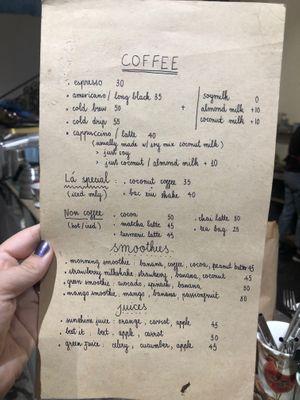 COFFEE
• espresso 30
• americano / long black 35
• cold brew 50
• cold drip 55
• cappuccino / latte 40
(usually made w/ soy mix coconut milk)
> just soy
> just coconut / almond milk + 10
+
soymilk 0
almond milk +10
coconut milk +10
Lá special : • coconut coffee 35
(iced only) • bac xiu shake 40
Non coffee • cocoa 50 • chai latte 50
(hot/iced) • matcha latte 45 • tea bag 25
• turmeric latte 45
smoothies
• morning smoothie : banana, coffee, cocoa, peanut butter 45
• strawberry milkshake : strawberry, banana, coconut 45
• green smoothie : avocado, spinach, banana 50
• mango smoothie : mango, banana, passionfruit 50
juices
• sunshine juice : orange, carrot, apple 45
• beet it : beet, apple, carrot 50
• green juice : celery, cucumber, apple 45